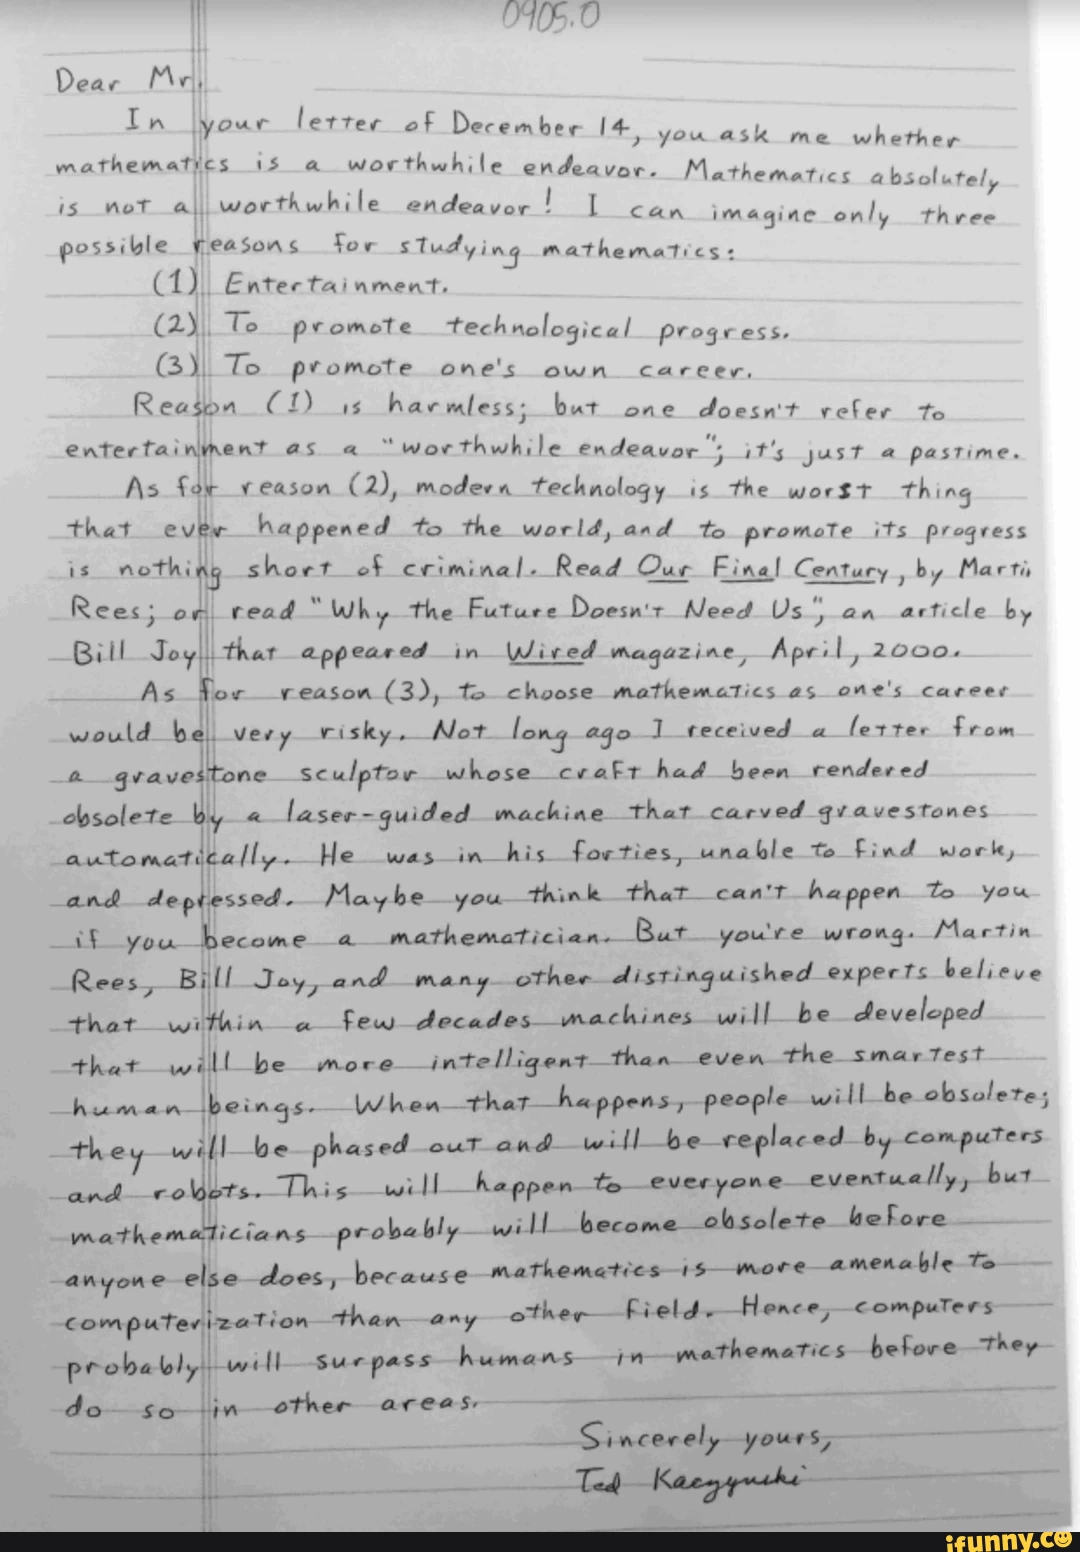 0905.0
Dear Mr.
In your letter of December 14, you ask me whether
mathematics is a worthwhile endeavor. Mathematics absolutely
is not a worthwhile endeavor! I can imagine only three
possible reasons for studying mathematics:
(1) Entertainment.
(2) To promote technological progress.
(3) To promote one's own career.
Reason (1) is harmless; but one doesn't refer to
entertainment as a "worthwhile endeavor"; it's just a pastime.
As for reason (2), modern technology is the worst thing
that ever happened to the world, and to promote its progress
is nothing short of criminal. Read Our Final Century, by Martin
Rees; or read "Why the Future Doesn't Need Us", an article by
Bill Joy that appeared in Wired magazine, April, 2000.
As for reason (3), to choose mathematics as one's career
would be very risky. Not long ago I received a letter from
a gravestone sculptor whose craft had been rendered
obsolete by a laser-guided machine that carved gravestones
automatically. He was in his forties, unable to find work,
and depressed. Maybe you think that can't happen to you
if you become a mathematician. But you're wrong. Martin
Rees, Bill Joy, and many other distinguished experts believe
that within a few decades machines will be developed
that will be more intelligent than even the smartest
human beings. When that happens, people will be obsolete;
they will be phased out and will be replaced by computers
and robots. This will happen to everyone eventually, but
mathematicians probably will become obsolete before
anyone else does, because mathematics is more amenable to
computerization than any other field. Hence, computers
probably will surpass humans in mathematics before they
do so in other areas.
Sincerely yours,
Ted Kaczynski
ifunny.co